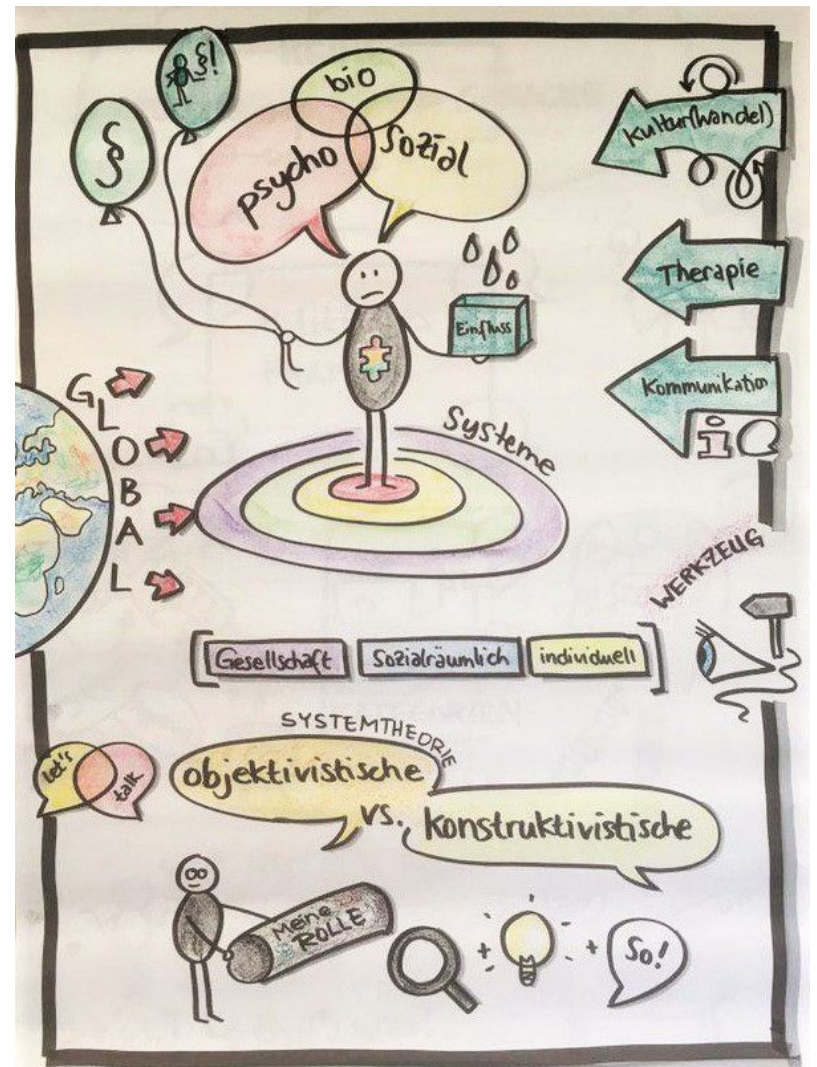 §!
§
bio
psycho
sozial
Kultur(wandel)
Therapie
Einfluss
Kommunikation
GLOBAL
Systeme
WERKZEUG
Gesellschaft
Sozialräumlich
individuell
SYSTEMTHEORIE
let's
talk
objektivistische
vs.
konstruktivistische
Meine
ROLLE
+
+
So!